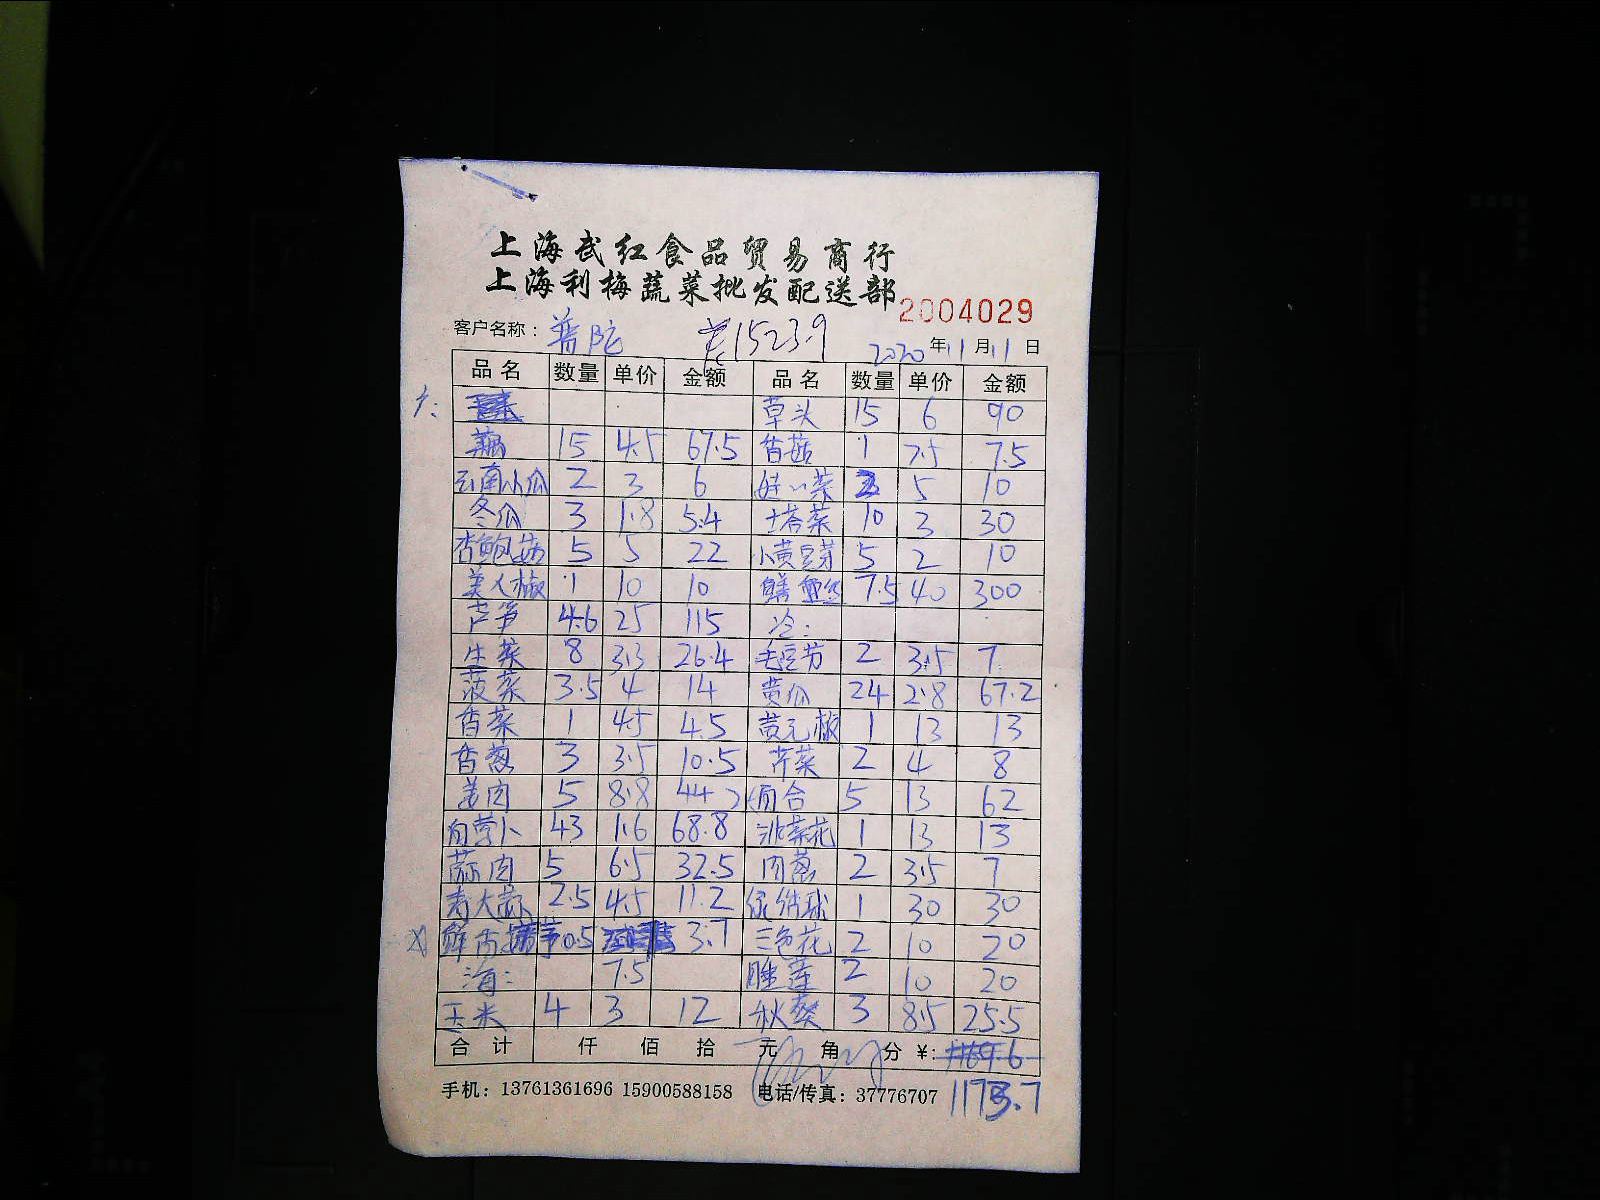 上海武红食品贸易商行
上海利梅蔬菜批发配送部
2004029
客户名称: 普陀 1523.9 2020年11月11日
品名 数量 单价 金额 品名 数量 单价 金额
草头 15 6 90
藕 15 4.5 67.5 香菇 1 7.5 7.5
云南小瓜 2 3 6 娃娃菜 2 5 10
冬瓜 3 1.8 5.4 塔菜 10 3 30
杏鲍菇 5 5 22 小黄豆芽 5 2 10
美人椒 1 10 10 鳝鱼丝 7.5 40 300
芦笋 4.6 25 115 冷:
生菜 8 3.3 26.4 毛豆节 2 3.5 7
菠菜 3.5 4 14 黄瓜 24 2.8 67.2
香菜 1 4.5 4.5 黄元椒 1 13 13
香葱 3 3.5 10.5 芹菜 2 4 8
姜肉 5 8.8 44 百合 5 13 62
白萝卜 43 1.6 68.8 沙菜花 1 13 13
蒜肉 5 6.5 32.5 肉葱 2 3.5 7
寿大蒜 2.5 4.5 11.2 1 30 30
0.5 3.7 三色花 2 10 20
海: 7.5 睡莲 2 10 20
玉米 4 3 12 秋葵 3 8.5 25.5
合计 仟 佰 拾 元 角 分 ¥: 1169.6
1173.7
手机: 13761361696 15900588158 电话/传真: 37776707